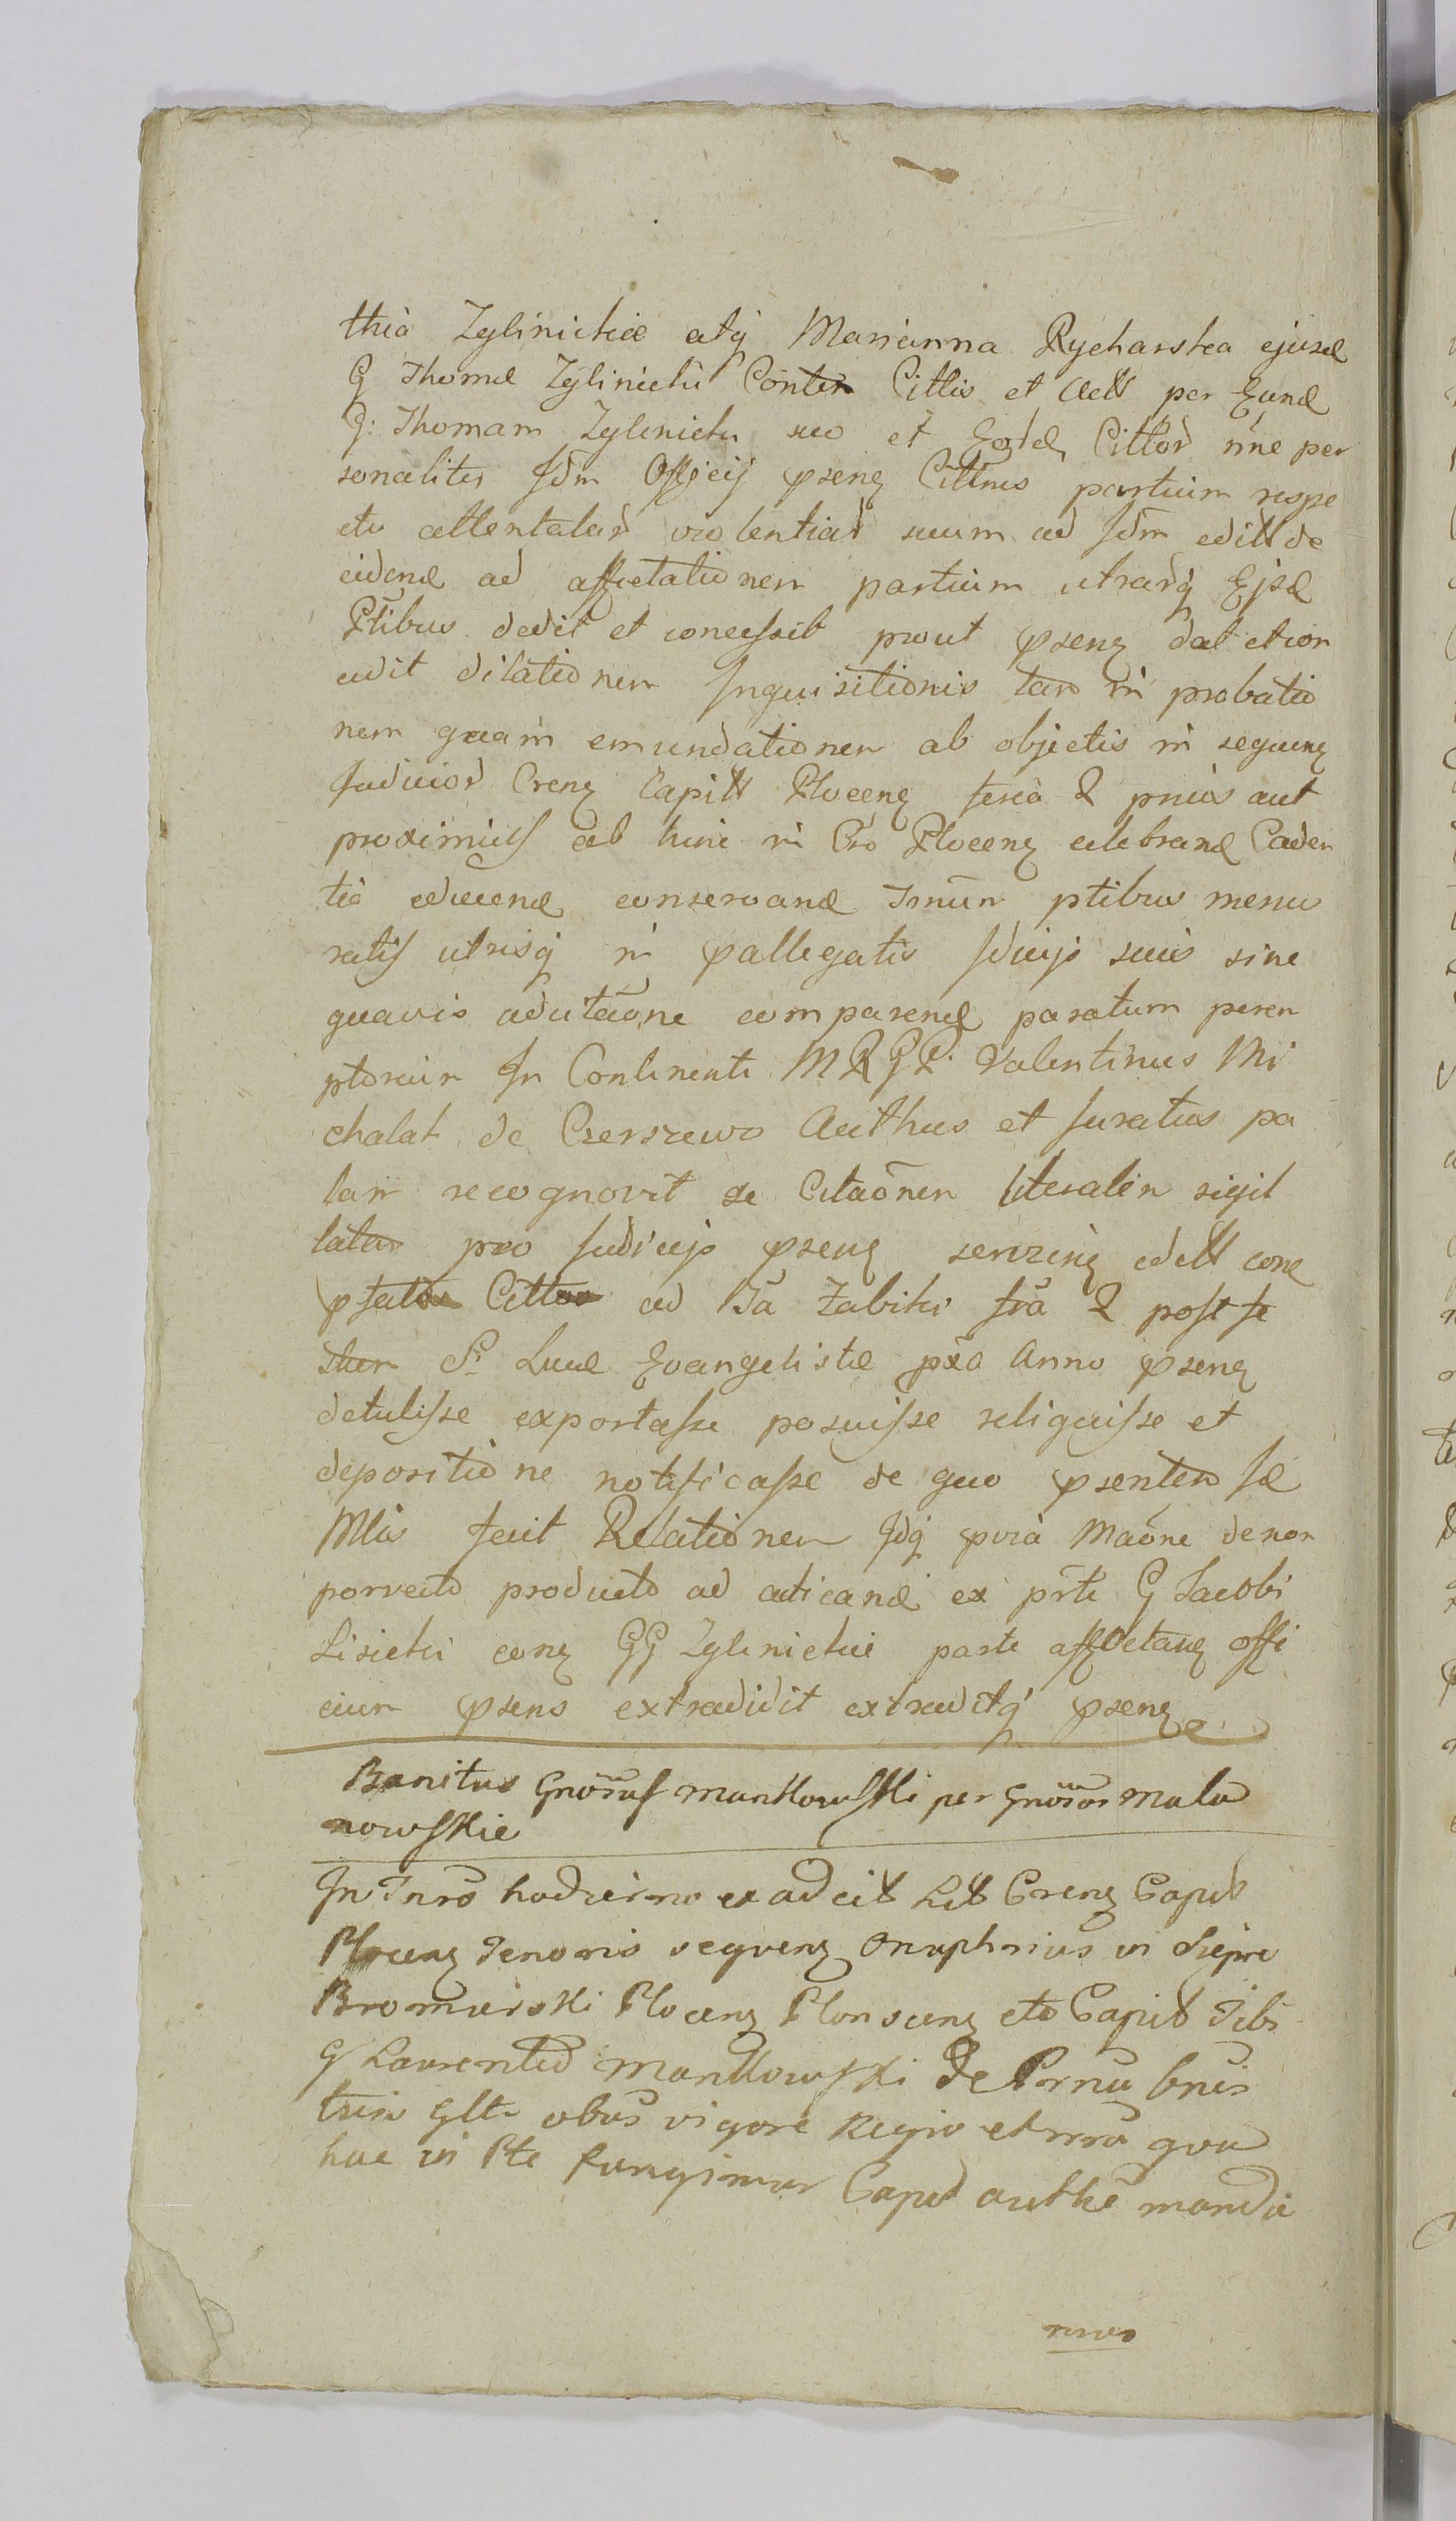 thia Zglinickie atq Marianna Rycharska ejusd
G Thomæ Zglinicki Conten Cittis et Aett per Eund
G: Thomam Zglinicki suo et Eord Cittor nne per
sonaliter Idm Officij psens Cittnus partium respe
ctu attentatar violentiar suum ad Idm edill de
cidend ad affectationem partium utrarq Ejsd
Ptibus dedit et concessit prout psens dat et con
cedit dilationem Inquisitionis tam in probatio
nem quam emundationem ab objectis in sequens
Judicior Crens Capitt Plocens feria 2 prius aut
proximius ab hinc in Cro Plocens celebrand Caden
tia educend conservand Tnum ptibus memo
ratis utrisq in pallegatis Iducijs suis sine
quavis aducitaone comparend paratum peren
ptorium In Continenti MRGP. Valentinus Mi
chalak de Czerszewo Authus et Juratus pa
lam recognovit se Citaonem literalem sigil
latam pro Judicijo psens serving edill cone
pfatos Cittos ad Ia Zabiki fra 2 post fe
stum S. Lucæ Evangelistæ pxa Anno psens
detulisse exportasse posuisse reliquisse et
depositione notificasse de quo psentem se
Mlis fecit Relationem Idq pvia Maone de non
porrecto producto ad acticand ex prte G Jacobi
Lisicki cons GG Zglinickie parte affectans offi
cium psens extradidit extraditq psens
Banitus Gnosus Mankowski per Gnosos Mala
nowskie
In Tnro hodierno ex ad cit Lit Crens Capit
Plocens Tenoris sequens Onuphrius in Siepre
Bromirski Plocens Plonscens etc Capit Tibi
G Laurentio Mankowski De Psnu bnis
tuis Gltr obus vigore Regio et nro qua
hac in Pte fungimur Capit authe manda
mus